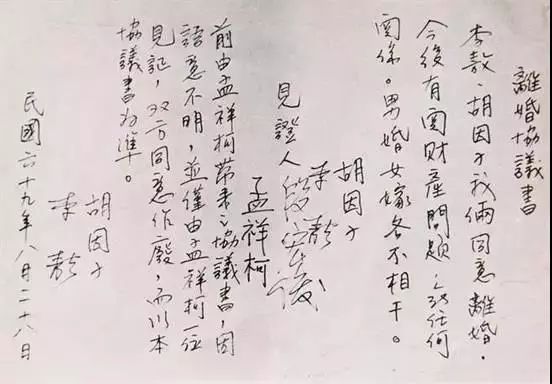 離婚協議書
李敖、胡因子我倆同意離婚。
今後有関財產問題，任何
関係。男婚女嫁各不相干。
胡因子
李敖
見證人
孟祥柯
前由孟祥柯帶来之協議書，因
語意不明，並僅由孟祥柯一位
見証，双方同意作廢，而以本
協議書為準。
胡因子
李敖
民國六十九年八月二十八日